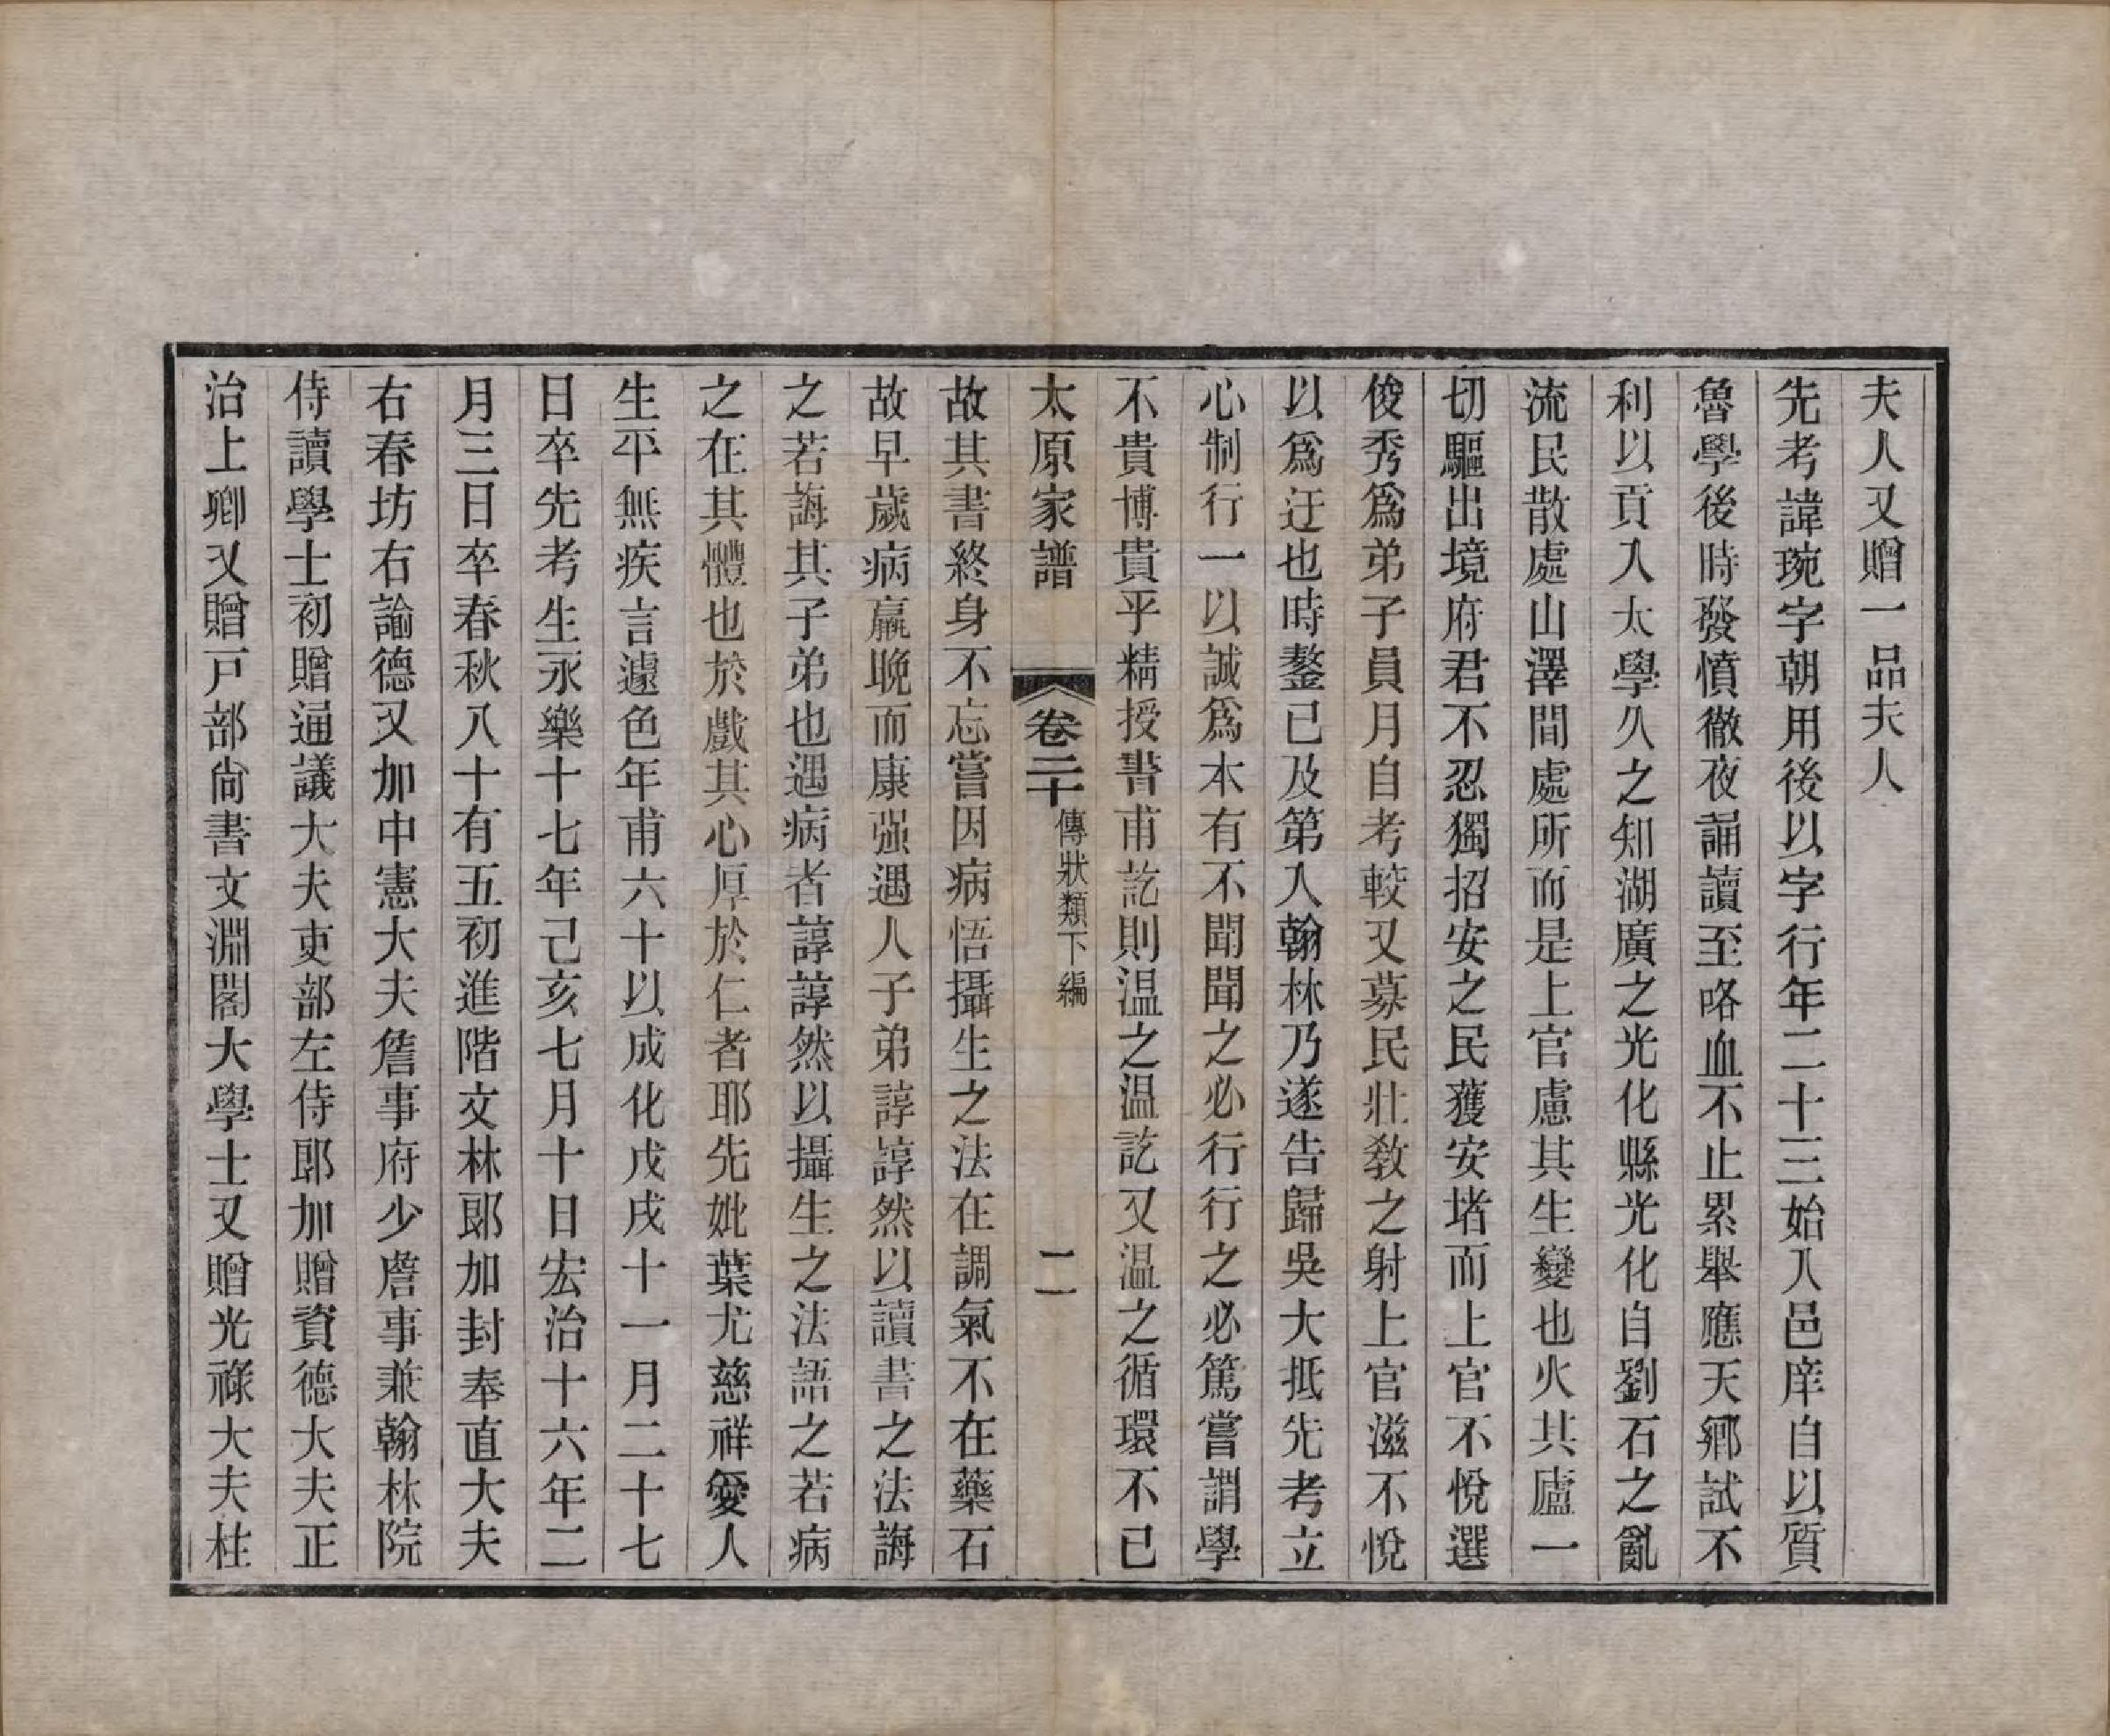 夫人又贈一品夫人
先考諱琬字朝用後以字行年二十三始入邑庠自以質
魯學後時發憤徹夜誦讀至咯血不止累舉應天鄉試不
利以貢入太學久之知湖廣之光化縣光化自劉石之亂
流民散處山澤間處所而是上官慮其生變也火其廬一
切驅出境府君不忍獨招安之民獲安堵而上官不悅選
俊秀爲弟子員月自考較又募民壯敎之射上官滋不悅
以爲迂也時鏊已及第入翰林乃遂告歸吳大抵先考立
心制行一以誠爲本有不聞聞之必行行之必篤嘗謂學
不貴博貴乎精授書甫訖則温之温訖又温之循環不已
太原家譜　卷二十　傳狀類下編　二
故其書終身不忘嘗因病悟攝生之法在調氣不在藥石
故早歲病羸晚而康强遇人子弟諄諄然以讀書之法誨
之若誨其子弟也遇病者諄諄然以攝生之法語之若病
之在其體也於戲其心厚於仁者耶先妣葉尤慈祥愛人
生平無疾言遽色年甫六十以成化戊戌十一月二十七
日卒先考生永樂十七年己亥七月十日宏治十六年二
月三日卒春秋八十有五初進階文林郎加封奉直大夫
右春坊右諭德又加中憲大夫詹事府少詹事兼翰林院
侍讀學士初贈通議大夫吏部左侍郎加贈資德大夫正
治上卿又贈戸部尚書文淵閣大學士又贈光祿大夫柱